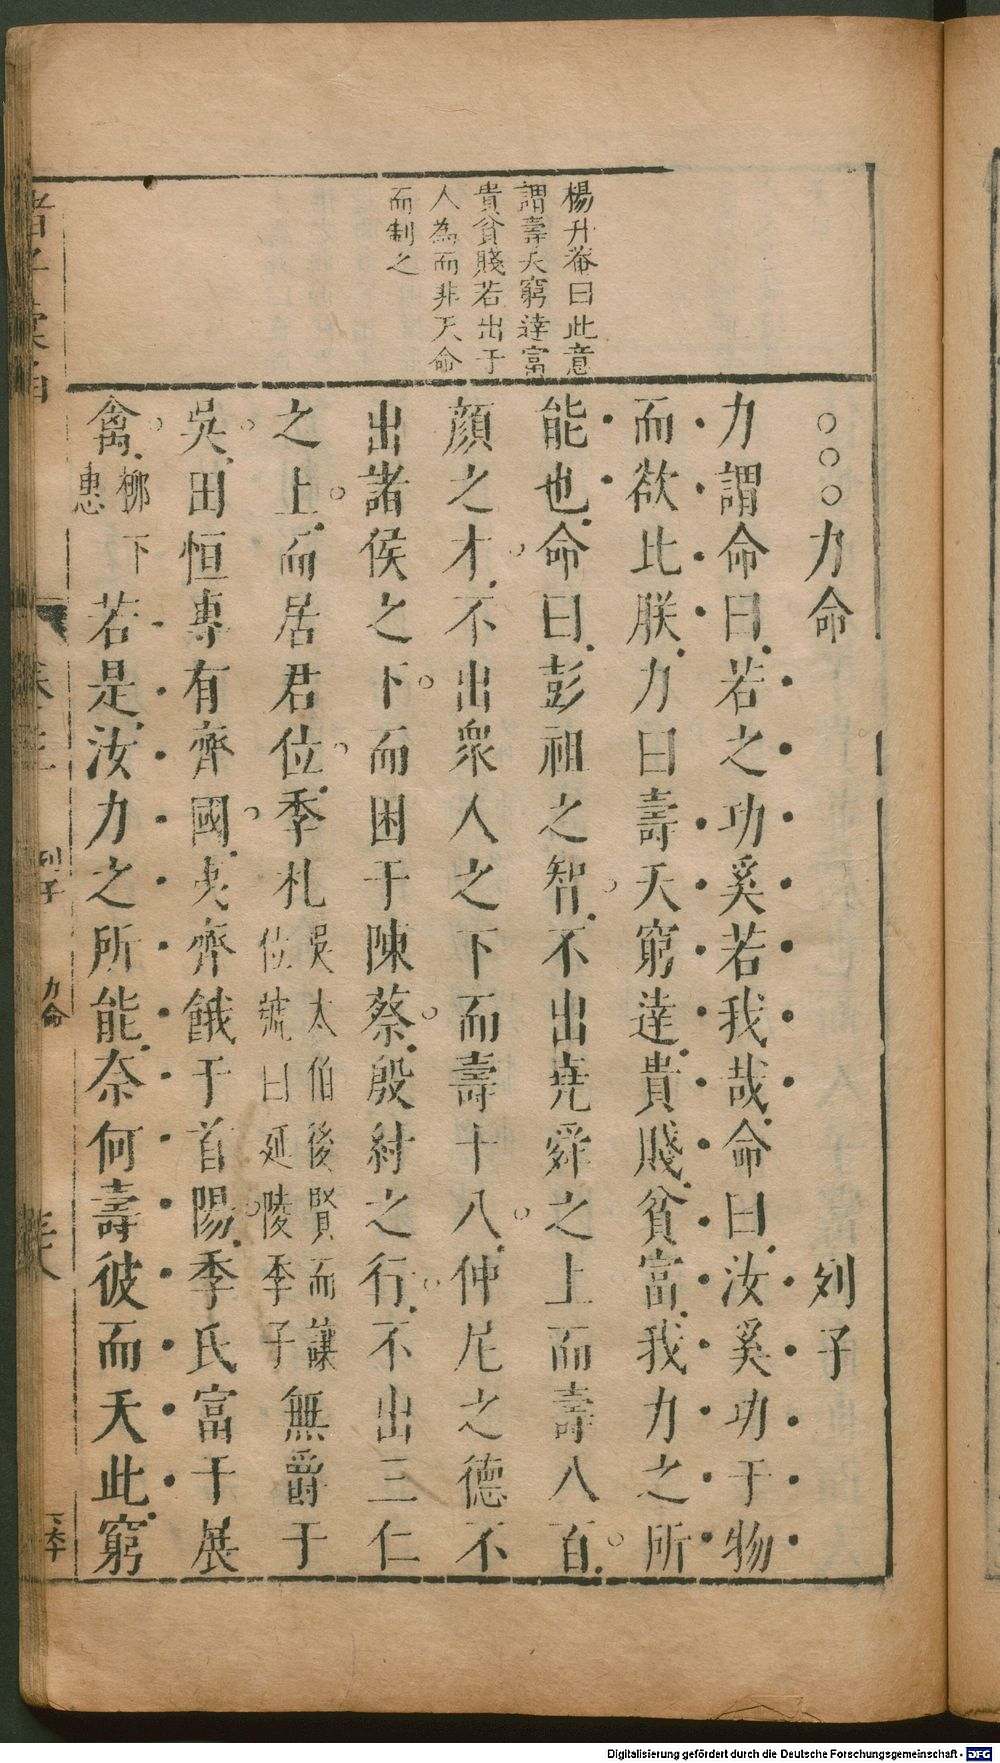 楊升菴曰此意
謂壽夭窮達富
貴貧賤若出于
人為而非天命
而制之
○○○力命 列子
力謂命曰若之功奚若我哉命曰汝奚功于物
而欲比朕力曰壽夭窮達貴賤貧富我力之所
能也命曰彭祖之智不出堯舜之上而壽八百
顏之才不出衆人之下而壽十八仲尼之德不
出諸侯之下而困于陳蔡殷紂之行不出三仁
之上而居君位季札吳太伯後賢而讓位號曰延陵季子無爵于
吳田恒專有齊國夷齊餓于首陽季氏富于展
禽柳下惠若是汝力之所能奈何壽彼而夭此窮
列子 力命
Digitalisierung gefördert durch die Deutsche Forschungsgemeinschaft - DFG